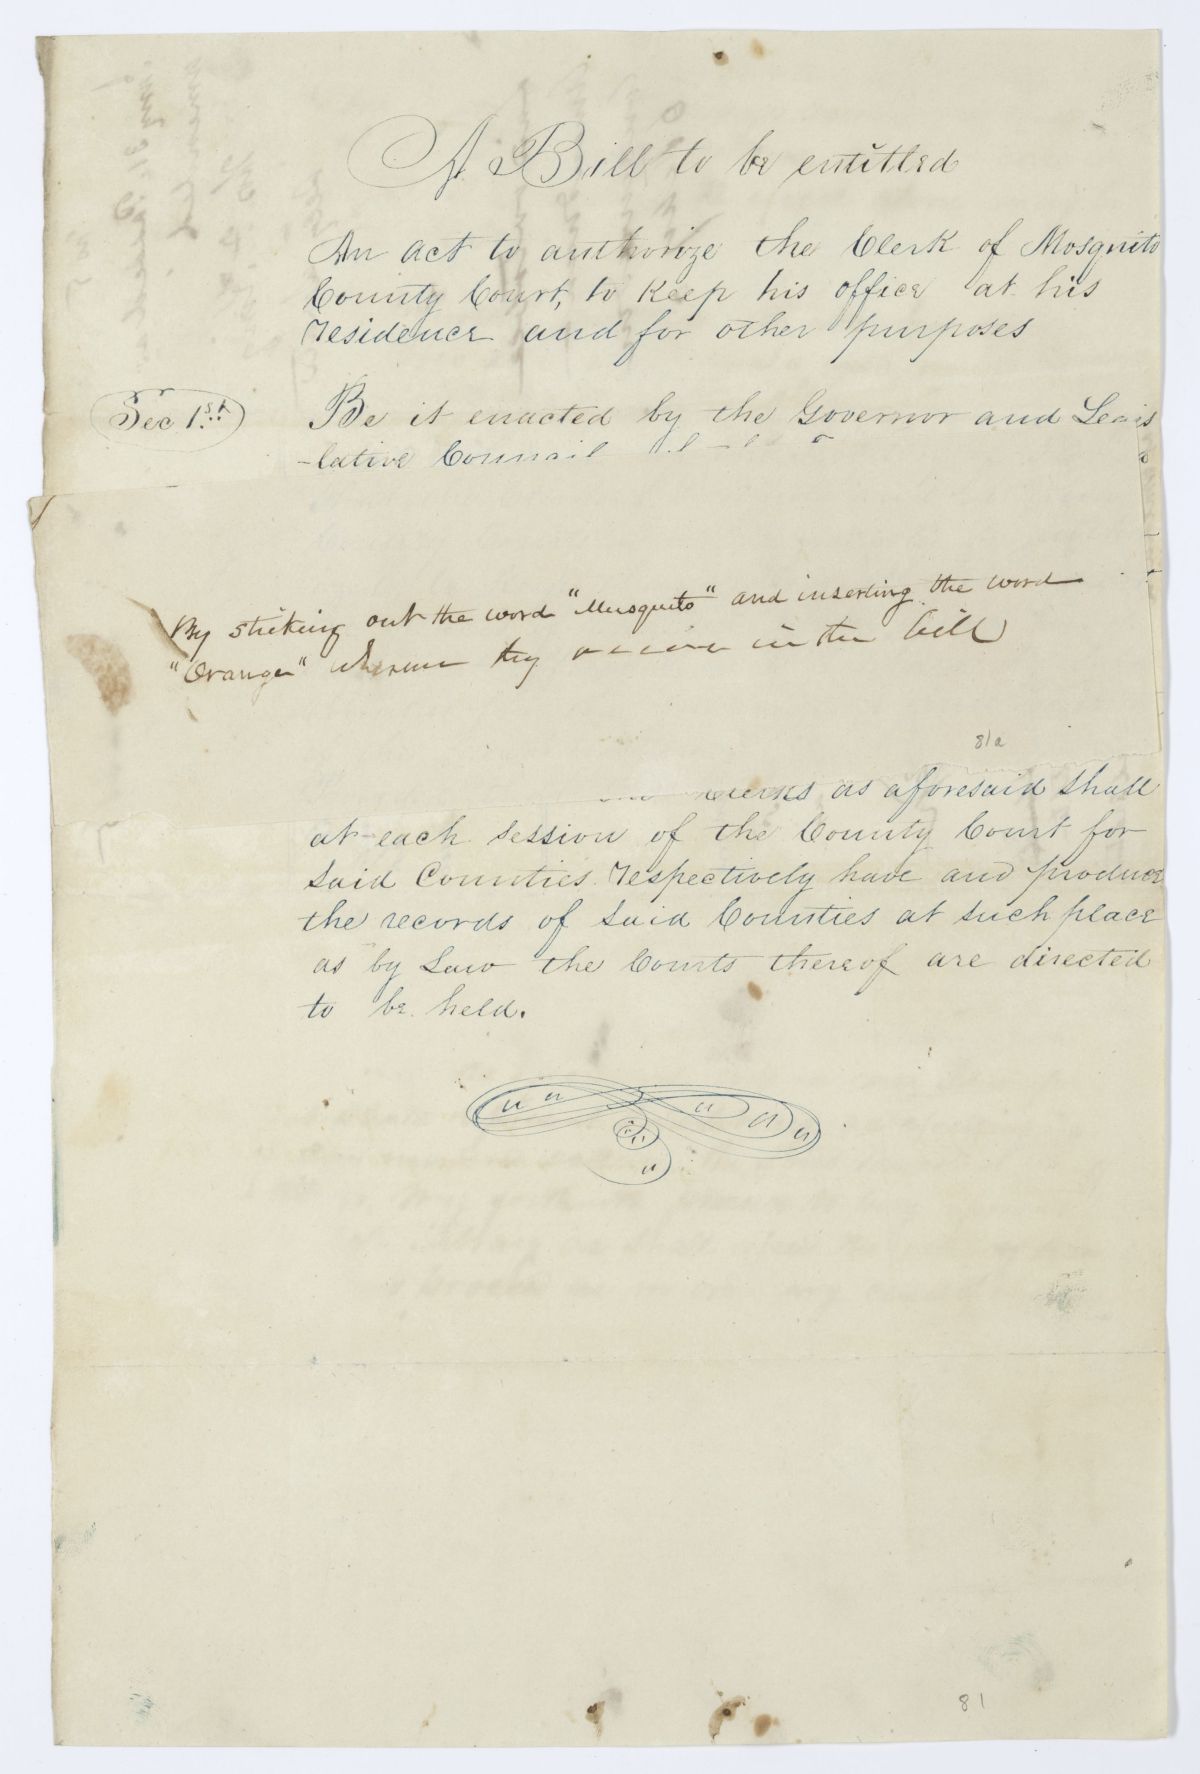 A Bill to be entitled
An act to authorize the Clerk of Mosquito
County Court, to keep his office at his
residence and for other purposes
Sec 1st. Be it enacted by the Governor and Legis
-lative Council
By striking out the word "Musquito" and inserting the word
"Orange" wherever they occur in the bill
81a
Clerks as aforesaid shall
at each session of the County Court for
said Counties respectively have and produce
the records of said Counties at such place
as by Law the Courts thereof are directed
to be held.
81